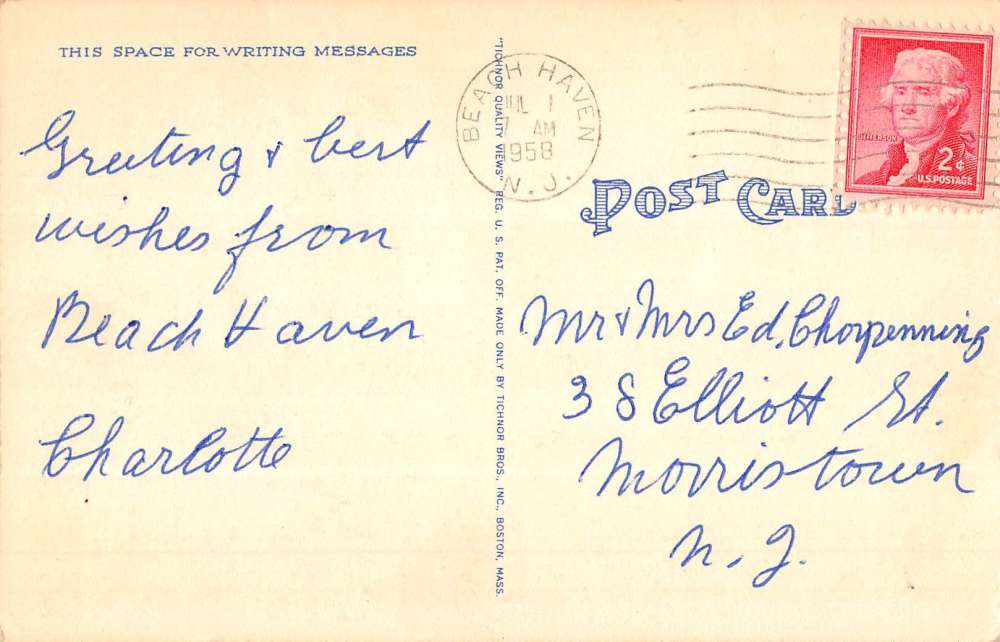 THIS SPACE FOR WRITING MESSAGES
Greeting & best
wishes from
Beach Haven
Charlotte
"TICHNOR QUALITY VIEWS" REG. U. S. PAT. OFF. MADE ONLY BY TICHNOR BROS., INC., BOSTON, MASS.
BEACH HAVEN
JUL 1
7 AM
1958
N. J.
JEFFERSON
2¢
U.S. POSTAGE
POST CARD
Mr & Mrs Ed. Chorpenning
38 Elliott St.
Morristown
N. J.